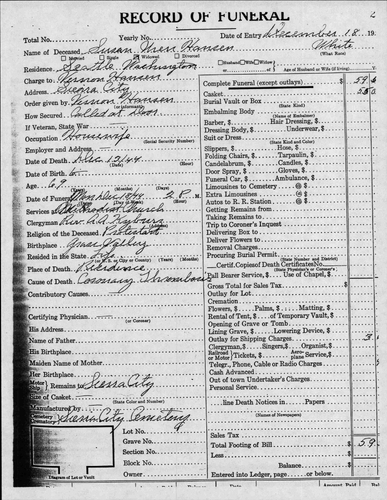 RECORD OF FUNERAL
Total No. Yearly No. Date of Entry December 18, 19
Name of Deceased Susan Hansen White
Married Single Widowed Divorced Husband Wife Widow of (What Race)
Residence Seattle, Washington Age of Husband or Wife (if living) Yrs.
Charge to Vernon Hansen
Address Sierra City
Order given by Vernon Hansen
(or informant)
How Secured Called at Door
If Veteran, State War
Occupation Housewife
(Social Security Number)
Employer and Address
Date of Death Dec 15/44
(Hour)
Date of Birth
Age 69
(Months) (Days)
Date of Funeral Mon Dec 18/44 2 P. M
Services at Church
Clergyman Rev.
Religion of the Deceased Protestant
Birthplace
Resided in the State
(N. S. or City or County) (Years)
Place of Death Residence
Cause of Death Coronary Thrombosis
Contributory Causes
Certifying Physician
(or Coroner)
His Address
Name of Father
His Birthplace
Maiden Name of Mother
Her Birthplace
Motor Ship Remains to Sierra City
Size of Casket
(State Color and Number)
Manufactured by
Cemetery Crematory Sierra City Cemetery
Lot No.
Grave No.
Section No.
Block No.
Owner
Diagram of Lot or Vault
Complete Funeral (except outlays) $
Casket $
Burial Vault or Box
(State Kind)
Embalming Body
(Name of Embalmer)
Barber, $ Hair Dressing, $
Dressing Body, $ Underwear, $
Suit or Dress
(State Kind and Color)
Slippers, $ Hose, $
Folding Chairs, $ Tarpaulin, $
Candelabrum, $ Candles, $
Door Spray, $ Gloves, $
Funeral Car, $ Ambulance, $
Limousines to Cemetery @ $
Extra Limousines @ $
Autos to R. R. Station @ $
Getting Remains from
Taking Remains to
Trip to Coroner's Inquest
Delivering Box to
Deliver Flowers to
Removal Charges
Procuring Burial Permit
(State Number and District)
Certif. Copies of Death Certificates No.
(State Physician's or Coroner's)
Pall Bearer Service, $ Use of Chapel, $
Gross Total for Sales Tax $
Outlay for Lot
Cremation
Flowers, $ Palms, $ Matting, $
Rental of Tent, $ of Temporary Vault, $
Opening of Grave or Tomb
Lining Grave, $ Lowering Device, $
Outlay for Shipping Charges 3
Clergyman, $ Singers, $ Organist, $
Railroad or Motor Tickets, $ Aeroplane Service, $
Telegr., Phone, Cable or Radio Charges
Cash Advanced
Out of town Undertaker's Charges
Personal Service
line Death Notices in Papers
(Names of Newspapers)
Sales Tax
Total Footing of Bill $ 59
Less
Balance $
Entered into Ledger, page or below.